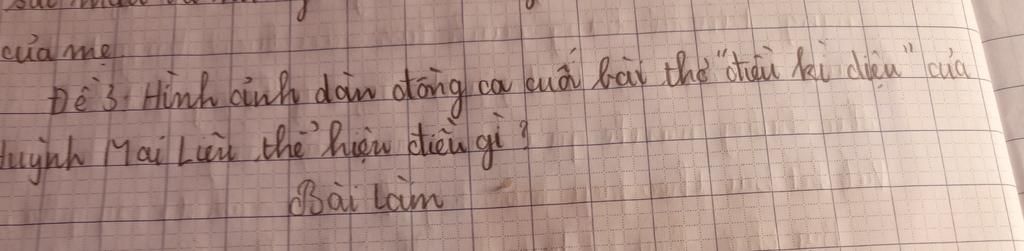 của mẹ
Đề 3: Hình ảnh dàn đồng ca cuối bài thơ "điều kì diệu" của
Huỳnh Mai Liên thể hiện điều gì?
Bài Làm